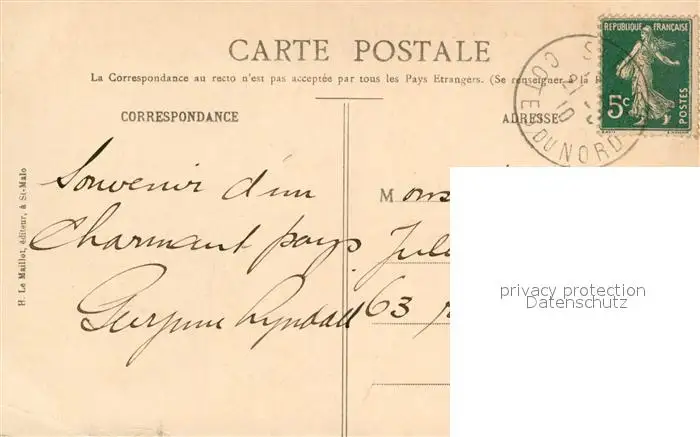 CARTE POSTALE
La Correspondance au recto n'est pas acceptée par tous les Pays Etrangers. (Se renseigner à la
RÉPUBLIQUE FRANÇAISE
5c
POSTES
COTES DU NORD
CORRESPONDANCE
ADRESSE
Souvenir d'un
charmant pays
M
Jul
63
H. Le Maillot, éditeur, à St-Malo
privacy protection
Datenschutz